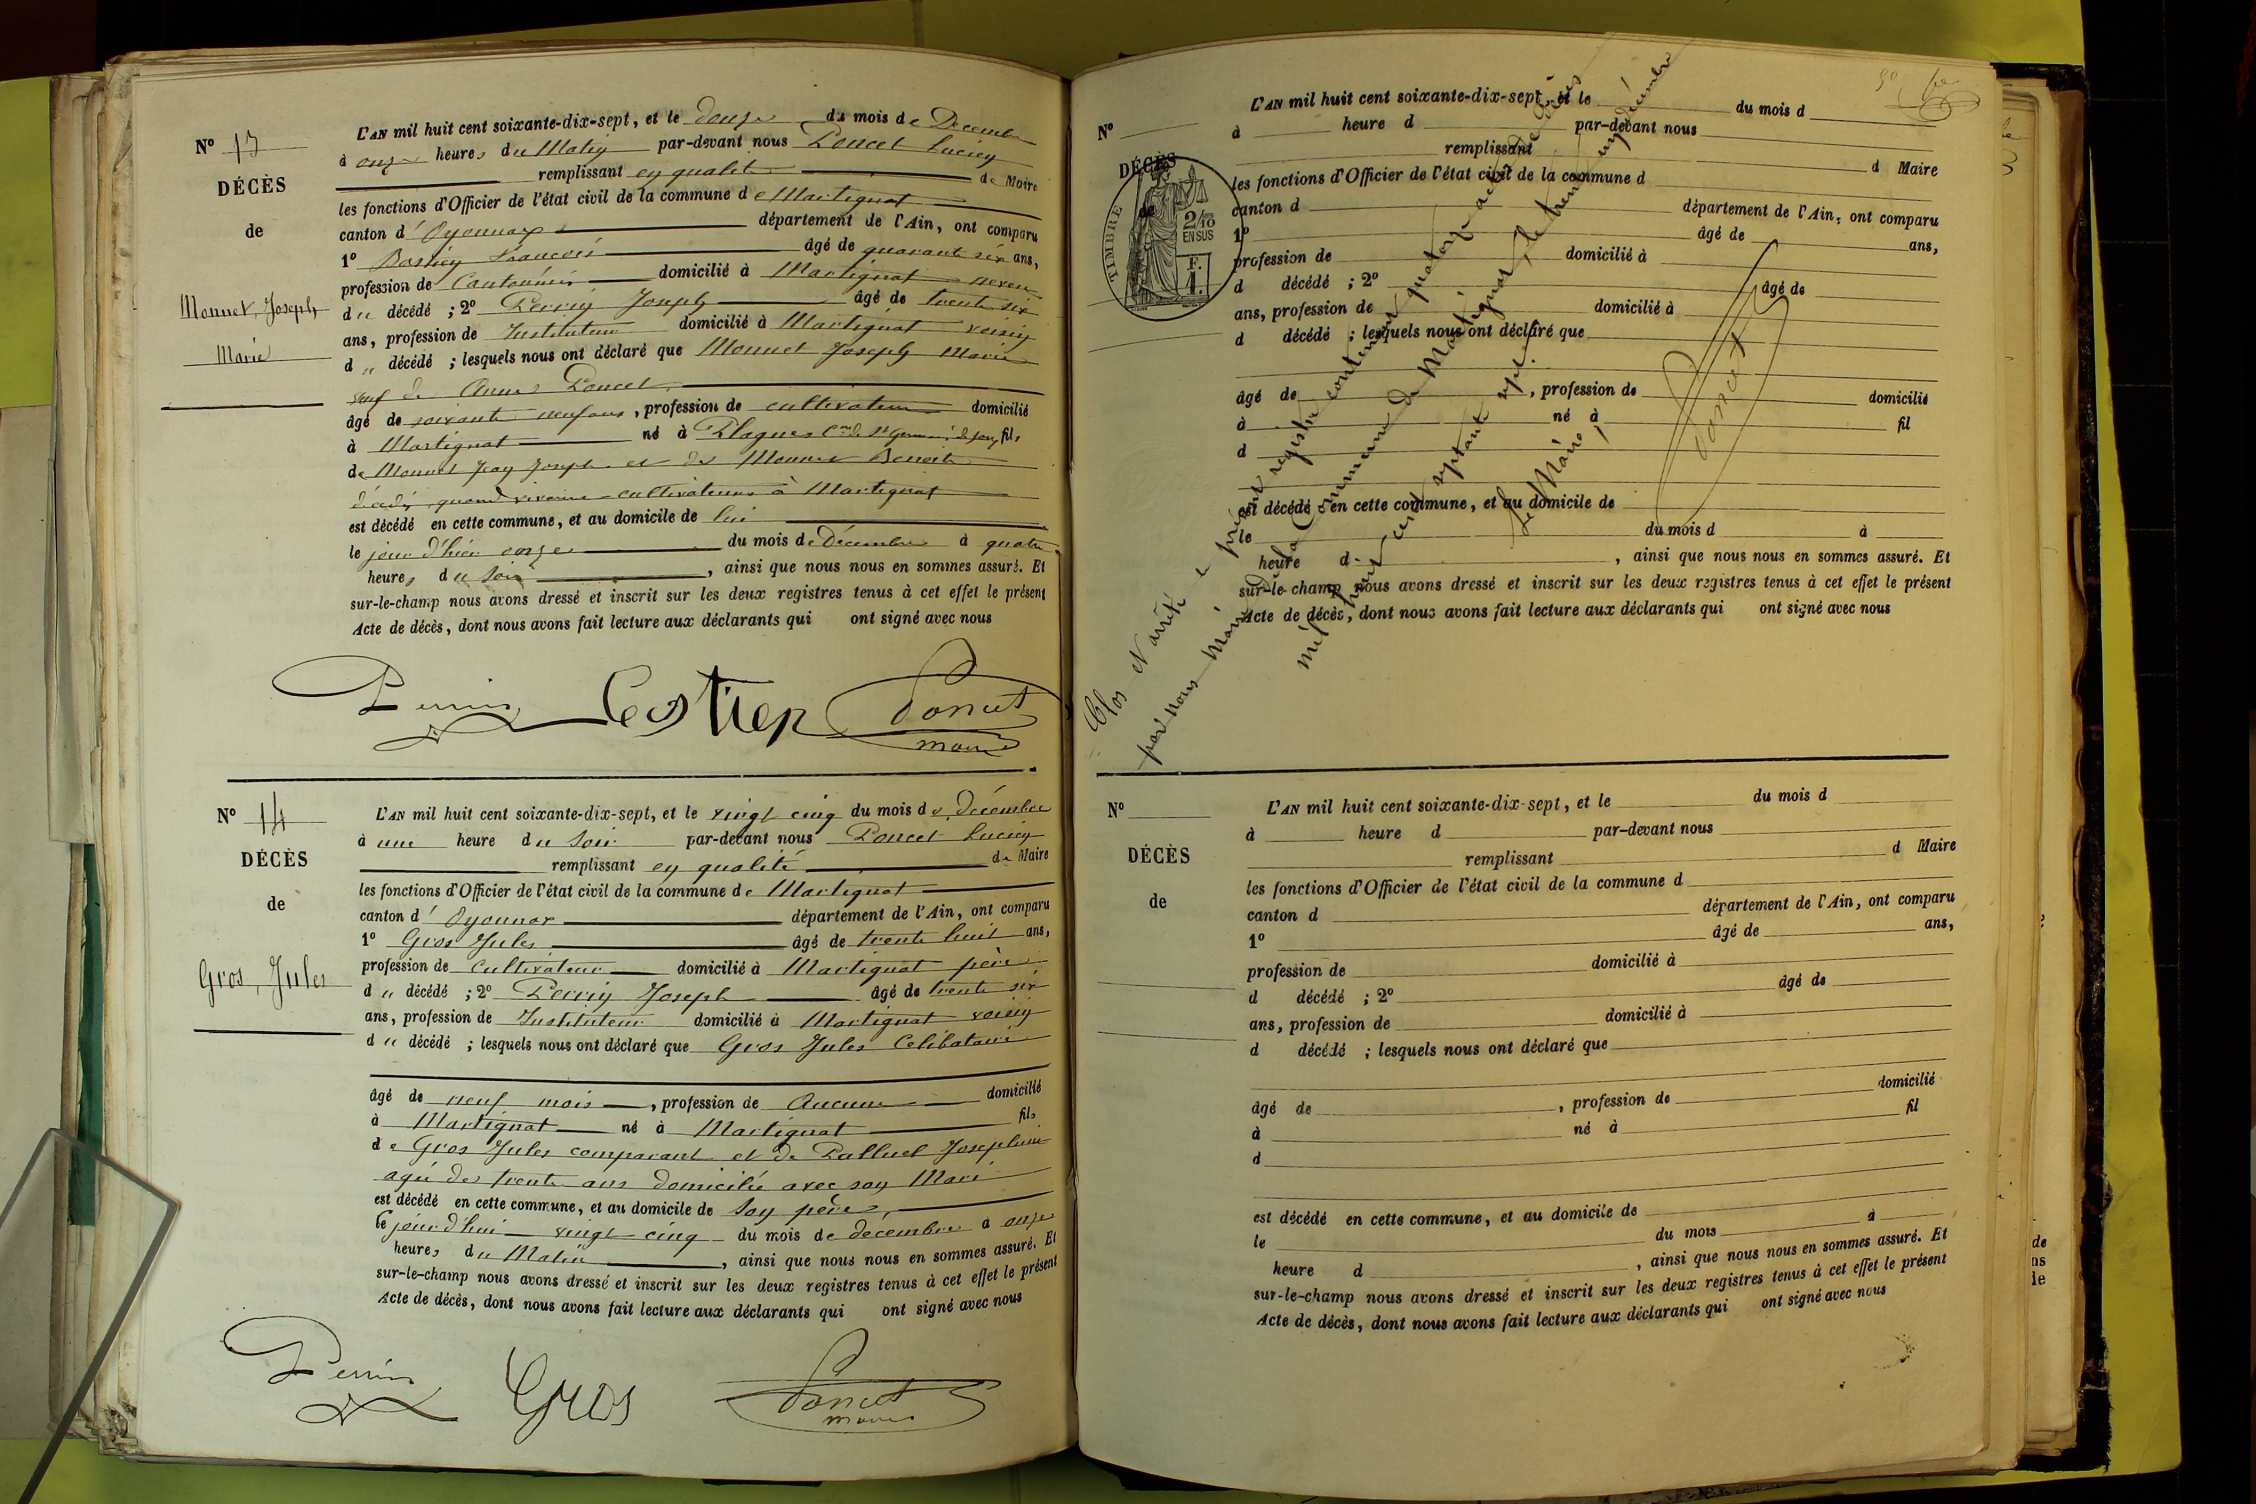 N° 13
DÉCÈS
de
Monnet, Joseph
Marie
L'AN mil huit cent soixante-dix-sept, et le douze du mois de Décembre
à onze heures du Matin par-devant nous Poncet Lucien
remplissant en qualité de Maire
les fonctions d'Officier de l'état civil de la commune de Martignat
canton d'Oyonnax département de l'Ain, ont comparu
1° François âgé de quarante six ans,
profession de Cantonnier domicilié à Martignat neveu
du décédé ; 2° Perrin Joseph âgé de trente six
ans, profession de Instituteur domicilié à Martignat voisin
du décédé ; lesquels nous ont déclaré que Monnet Joseph Marie
veuf de Anne Poncet
âgé de soixante neuf ans, profession de cultivateur domicilié
à Martignat né à Plagnes Cne de St Germain de Joux fils
de Monnet Jean Joseph et de Monnet Benoite
décédés quand vivaient cultivateurs à Martignat
est décédé en cette commune, et au domicile de lui
le jour d'hier onze du mois de Décembre à quatre
heures du soir, ainsi que nous nous en sommes assuré. Et
sur-le-champ nous avons dressé et inscrit sur les deux registres tenus à cet effet le présent
Acte de décès, dont nous avons fait lecture aux déclarants qui ont signé avec nous
Perrin Poncet
maire
N° 14
DÉCÈS
de
Gros, Jules
L'AN mil huit cent soixante-dix-sept, et le vingt cinq du mois de décembre
à une heure du soir par-devant nous Poncet Lucien
remplissant en qualité de Maire
les fonctions d'Officier de l'état civil de la commune de Martignat
canton d'Oyonnax département de l'Ain, ont comparu
1° Gros Jules âgé de trente huit ans,
profession de cultivateur domicilié à Martignat père
du décédé ; 2° Perrin Joseph âgé de trente six
ans, profession de Instituteur domicilié à Martignat voisin
du décédé ; lesquels nous ont déclaré que Gros Jules Celibataire
âgé de neuf mois, profession de Aucune domicilié
à Martignat né à Martignat fils
de Gros Jules comparant et de Palluel Josephine
agée de trente ans domicilié avec son Mari
est décédé en cette commune, et au domicile de son père,
le jour d'hui vingt cinq du mois de decembre à onze
heures du Matin, ainsi que nous nous en sommes assuré. Et
sur-le-champ nous avons dressé et inscrit sur les deux registres tenus à cet effet le présent
Acte de décès, dont nous avons fait lecture aux déclarants qui ont signé avec nous
Perrin Gros Poncet
maire
N°
DÉCÈS
de
TIMBRE
2/10
EN SUS
F.
1.
L'AN mil huit cent soixante-dix-sept, et le du mois d
à heure d par-devant nous
remplissant d Maire
les fonctions d'Officier de l'état civil de la commune d
canton d département de l'Ain, ont comparu
1° âgé de ans,
profession de domicilié à
d décédé ; 2° âgé de
ans, profession de domicilié à
d décédé ; lesquels nous ont déclaré que
âgé de , profession de domicilié
à né à fil
d
est décédé en cette commune, et au domicile de
le du mois d à
heure d , ainsi que nous nous en sommes assuré. Et
sur-le-champ nous avons dressé et inscrit sur les deux registres tenus à cet effet le présent
Acte de décès, dont nous avons fait lecture aux déclarants qui ont signé avec nous
Clos et arrêté le présent registre contenant quatorze actes de décès
par nous Maire de la Commune de Martignat, le trente un décembre
mil huit cent septante sept.
Le Maire,
Poncet
N°
DÉCÈS
de
L'AN mil huit cent soixante-dix-sept, et le du mois d
à heure d par-devant nous
remplissant d Maire
les fonctions d'Officier de l'état civil de la commune d
canton d département de l'Ain, ont comparu
1° âgé de ans,
profession de domicilié à
d décédé ; 2° âgé de
ans, profession de domicilié à
d décédé ; lesquels nous ont déclaré que
âgé de , profession de domicilié
à né à fil
d
est décédé en cette commune, et au domicile de
le du mois à
heure d , ainsi que nous nous en sommes assuré. Et
sur-le-champ nous avons dressé et inscrit sur les deux registres tenus à cet effet le présent
Acte de décès, dont nous avons fait lecture aux déclarants qui ont signé avec nous